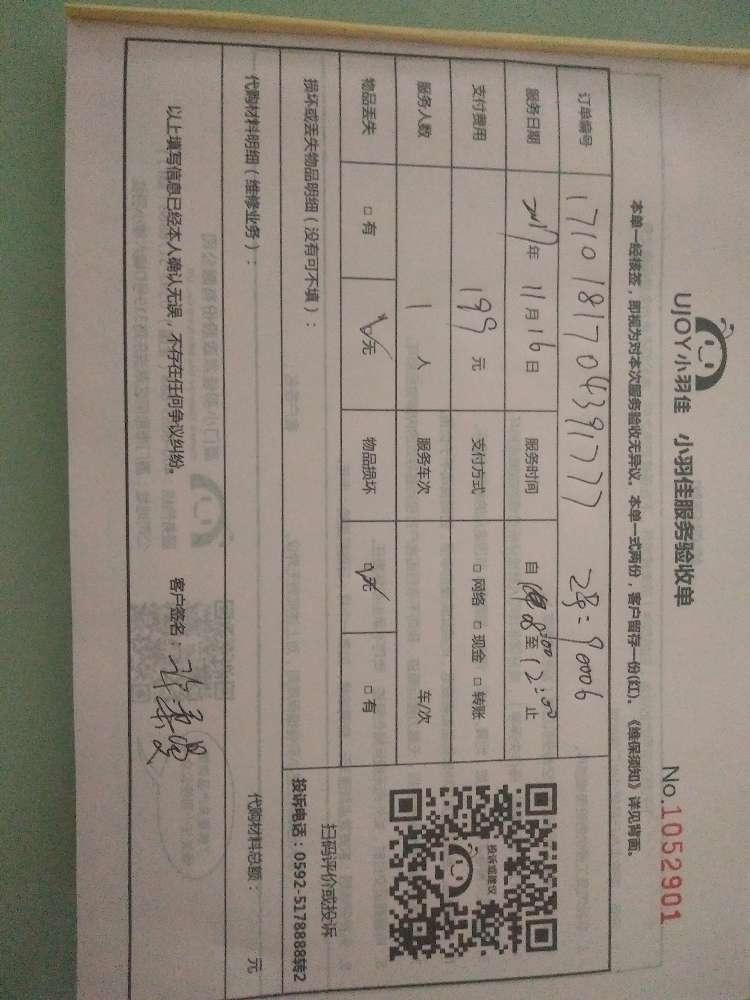 UJOY小羽佳 小羽佳服务验收单
No.1052901
本单一经核签，即视为对本次服务验收无异议。本单一式两份，客户留存一份(红)。《维保须知》详见背面。
订单编号 171018170439177 工号：90006
服务日期 2017年11月16日 服务时间 自 8:00 至 12:00 止
支付费用 199 元 支付方式 □网络 □现金 □转账
服务人数 1 人 服务车次 车/次
物品丢失 □有 ☑无 物品损坏 ☑无 □有
投诉或建议
扫码评价或投诉
投诉电话：0592-5178888转2
损坏或丢失物品明细（没有可不填）：
代购材料明细（维修业务）： 代购材料总额： 元
以上填写信息已经本人确认无误，不存在任何争议纠纷。 客户签名：